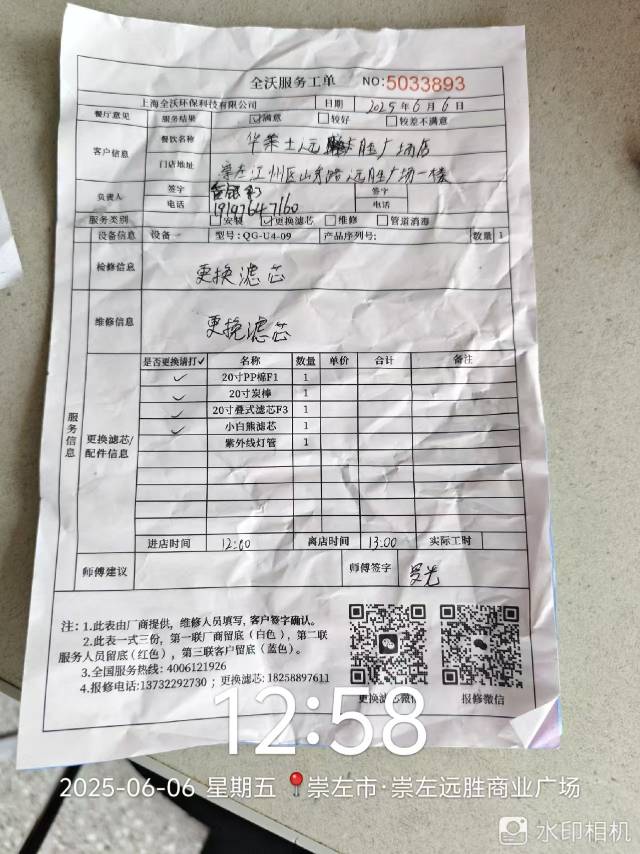 全沃服务工单 NO:5033893
上海全沃环保科技有限公司 日期 2025年6月6日
餐厅意见 服务结果 ☑满意 □较好 □较差不满意
客户信息 餐饮名称 华莱士 远胜广场店
门店地址 崇左江州区山秀路远胜广场一楼
负责人 签字 签字
电话 19197647160 电话
服务类别 □安装 ☑更换滤芯 □维修 □管道消毒
设备信息 设备一 型号:QG-U4-09 产品序列号: 数量 1
检修信息 更换滤芯
维修信息 更换滤芯
服务信息
更换滤芯/配件信息
是否更换请打✓ 名称 数量 单价 合计 备注
✓ 20寸PP棉F1 1
✓ 20寸炭棒 1
✓ 20寸叠式滤芯F3 1
✓ 小白熊滤芯 1
紫外线灯管 1
进店时间 12:00 离店时间 13:00 实际工时
师傅建议 师傅签字 罗光
注：1.此表由厂商提供，维修人员填写，客户签字确认。
2.此表一式三份，第一联厂商留底（白色），第二联
服务人员留底（红色），第三联客户留底（蓝色）。
3.全国服务热线: 4006121926
4.报修电话:13732292730 ; 更换滤芯:18258897611
更换滤芯微信 报修微信
12:58
2025-06-06 星期五 崇左市·崇左远胜商业广场
水印相机